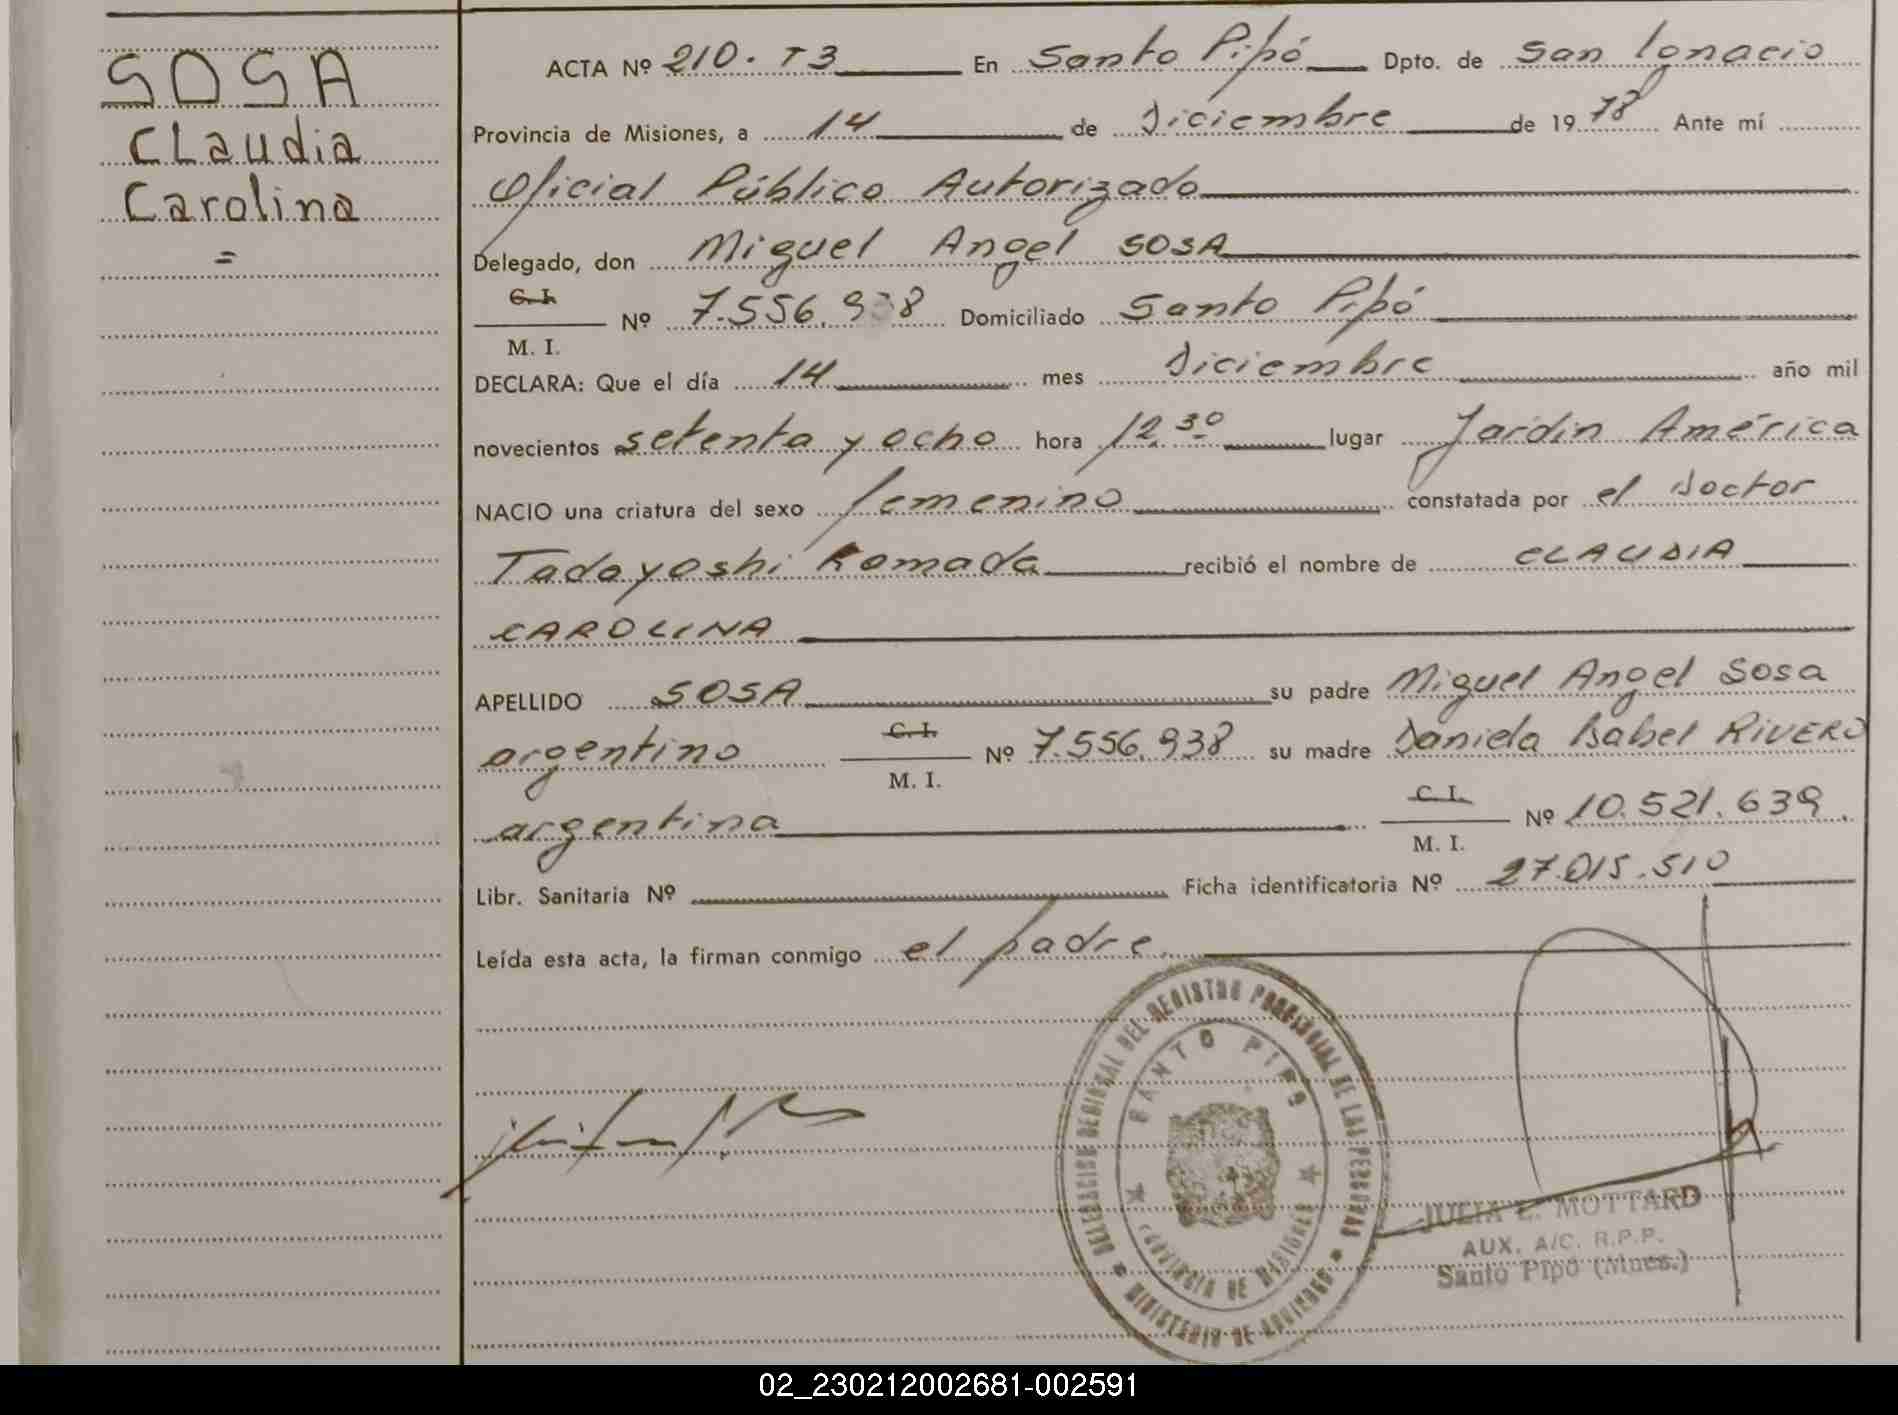 SOSA
Claudia
Carolina
=
ACTA Nº 210. T3 En Santo Pipó Dpto. de San Ignacio
Provincia de Misiones, a 14 de Diciembre de 1978 Ante mí
Oficial Público Autorizado
Delegado, don Miguel Angel SOSA
C. I.
Nº 7.556.938 Domiciliado Santo Pipó
M. I.
DECLARA: Que el día 14 mes Diciembre año mil
novecientos setenta y ocho hora 12.30 lugar Jardín América
NACIO una criatura del sexo femenino constatada por el Doctor
Tadayoshi Komada recibió el nombre de CLAUDIA
CAROLINA
APELLIDO SOSA su padre Miguel Angel Sosa
argentino C. I. Nº 7.556.938 su madre Daniela Isabel RIVERO
M. I.
argentina C. I. Nº 10.521.639.
M. I.
Libr. Sanitaria Nº Ficha identificatoria Nº 27.015.510
Leída esta acta, la firman conmigo el padre.
DELEGACION REGIONAL DEL REGISTRO PROVINCIAL DE LAS PERSONAS
SANTO PIPO
PROVINCIA DE MISIONES
MINISTERIO DE GOBIERNO
JULIA E. MOTTARD
AUX. A/C. R.P.P.
Santo Pipó (Mnes.)
02_230212002681-002591